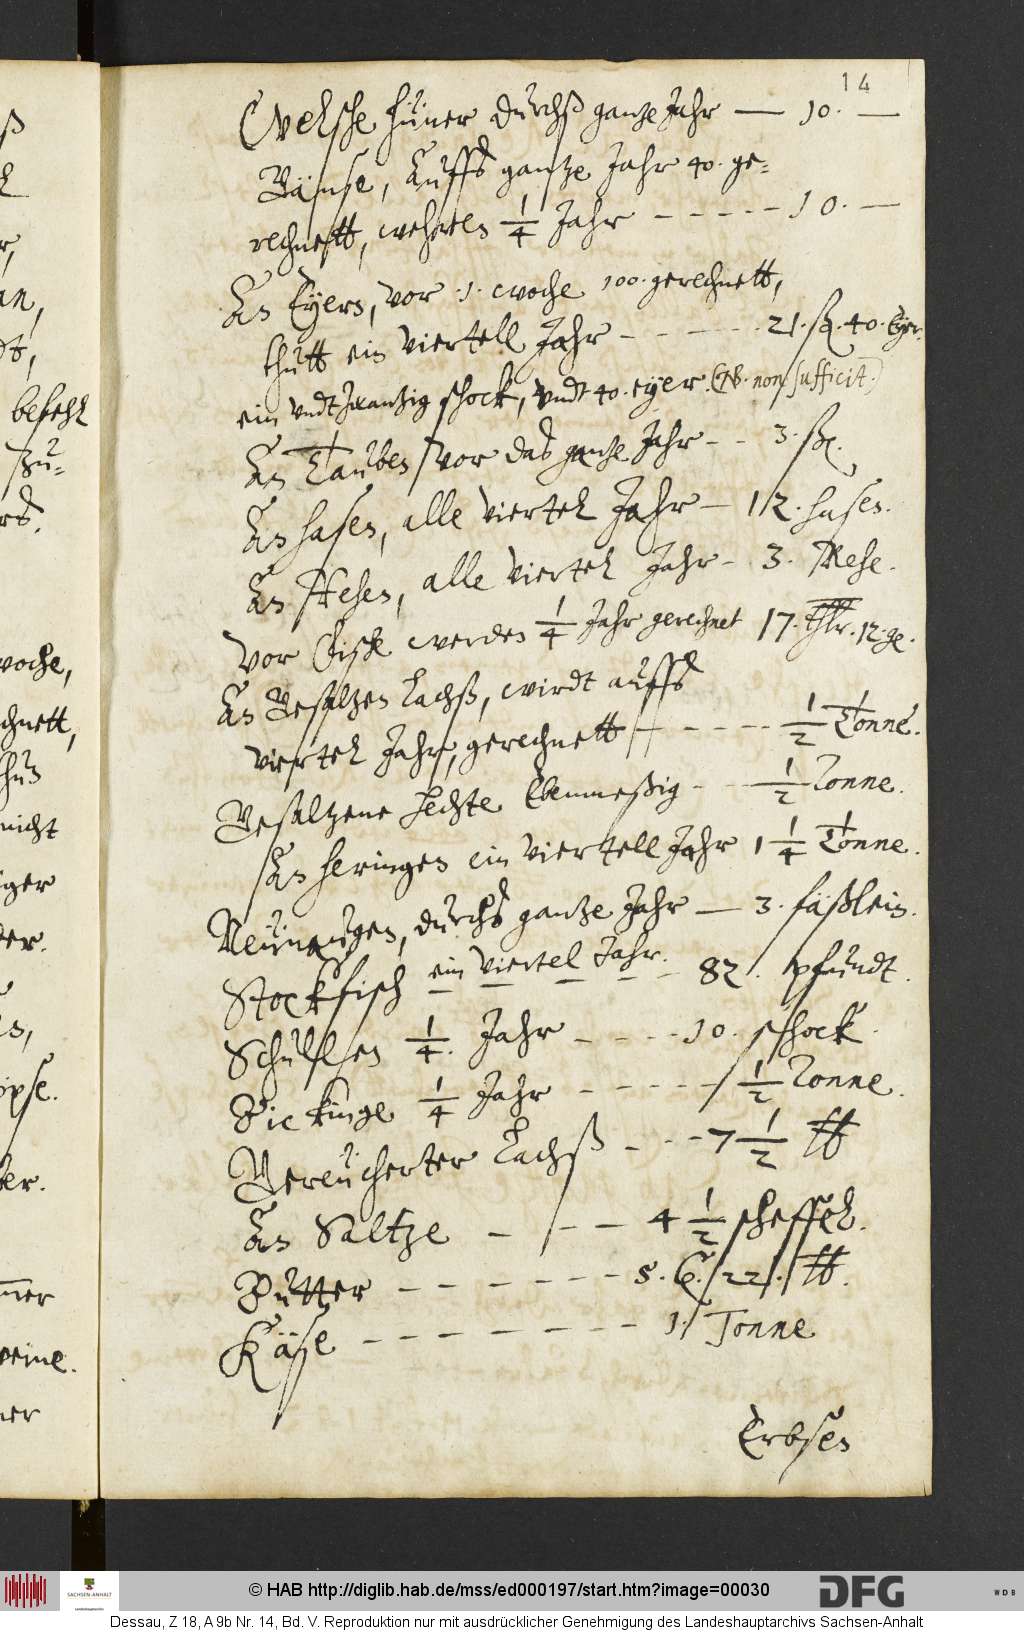 14
Welsche hüner durchß gantze Jahr — 10. —
Gänse, Auffs gantze Jahr 40. ge=
rechnett, wehren 1/4 Jahr - - - - - 10. —
An Eyern, vor .1. woche 100. gerechnett,
thutt ein viertell Jahr - - - - - 21. ß. 40. Eyer.
ein undt zwantzig schock, undt 40. eyer. (NB. non sufficit.)
An Tauben vor das gantze Jahr - - 3. ß.
An hasen, alle viertel Jahr — 12. hasen.
An Rehen, alle viertel Jahr - 3. Rehe.
Vor Fische werden 1/4 Jahr gerechnet 17. thlr. 12. ge.
An Gesaltzen Lachß, wirdt auffs
viertel Jahr, gerechnett - - - - 1/2 Tonne.
Gesaltzene Hechte Ebenmeßig - - 1/2 Tonne.
An heringen ein viertell Jahr 1 1/4 Tonne.
Neünaugen, durchs gantze Jahr — 3. fäßlein.
Stockfisch ein viertel Jahr. - - - 82. pfundt.
Schullen 1/4. Jahr - - - - 10. schock.
Pickinge 1/4 Jahr - - - - - 1/2 Tonne.
Gereücherter Lachß - - - 7 1/2 ℔
An Saltze - - - 4 1/2 scheffel.
Butter - - - - - - - 5. C. 22. ℔.
Käse - - - - - - - - 1. Tonne
Erbsen
befehl
zu=
woche,
chnett,
nicht
iger
er.
mer
weine.
ner
SACHSEN-ANHALT
© HAB http://diglib.hab.de/mss/ed000197/start.htm?image=00030
DFG
WDB
Dessau, Z 18, A 9b Nr. 14, Bd. V. Reproduktion nur mit ausdrücklicher Genehmigung des Landeshauptarchivs Sachsen-Anhalt